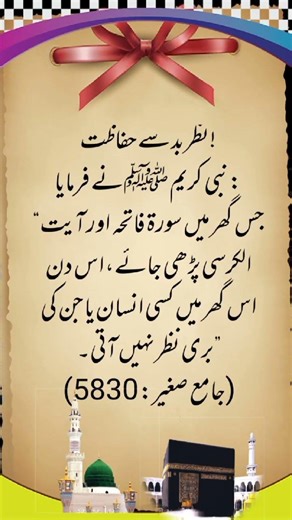 نظر بد سے حفاظت !
نبی کریم ﷺ نے فرمایا :
"جس گھر میں سورۃ فاتحہ اور آیت
الکرسی پڑھی جائے ، اس دن
اس گھر میں کسی انسان یا جن کی
بری نظر نہیں آتی۔"
(جامع صغیر : 5830)